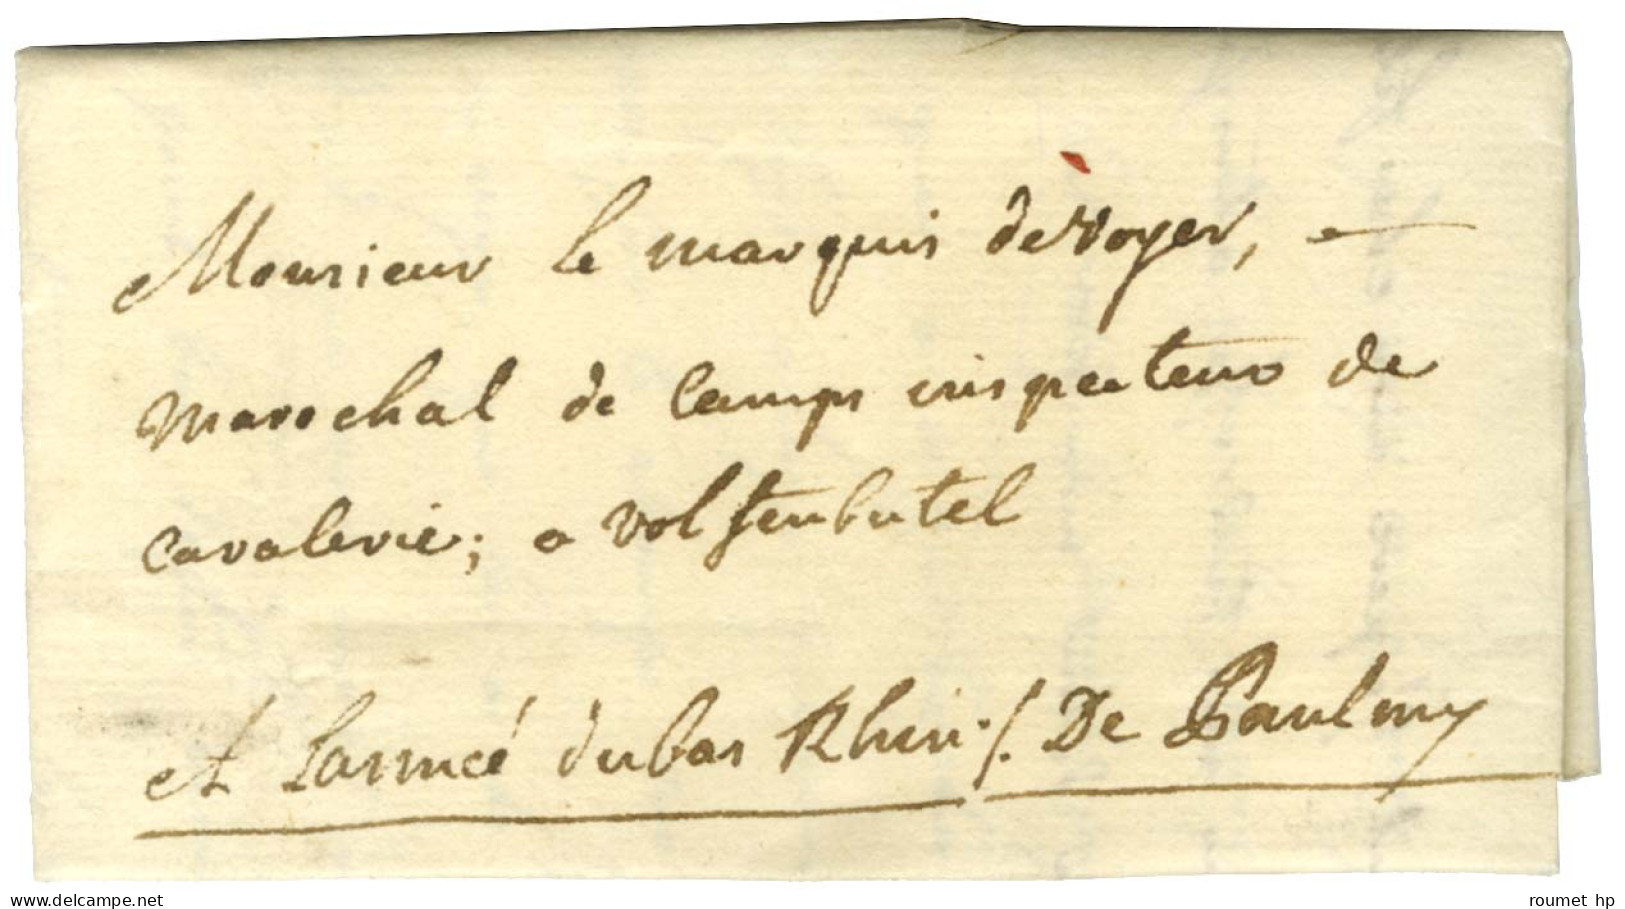 Monsieur le marquis de voyer, -
marechal de camps inspecteur de
Cavalerie; a volfsenbutel
A Larmeé dubas Rhin ./. De Paulmy
delcampe.net
roumet hp